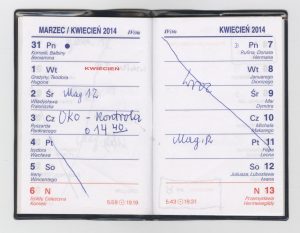 MARZEC / KWIECIEŃ 2014
31 Pn
Kornelii, Balbiny
Beniamina
1 Wt
KWIECIEŃ
Grażyny, Teodora
Hugona
2 Śr
Mag 12
Władysława
Franciszka
3 Cz
OKO - Kontrola
Ryszarda
Pankracego
o 14 40
4 Pt
Izydora
Wacława
5 So
Ireny
Wincentego
6 N
Izoldy, Celestyna
5:58 19:19
KWIECIEŃ 2014
Pn 7
Rufina, Donata
Hermana
Wt 8
Januarego
Dionizego
Śr 9
Maji
Dymitra
Cz 10
Michała
Makarego
Mag.R
Pt 11
Filipa
Leona
So 12
Juliusza, Lubosława
N 13
Przemysława
Hermenegildy
5:43 19:31